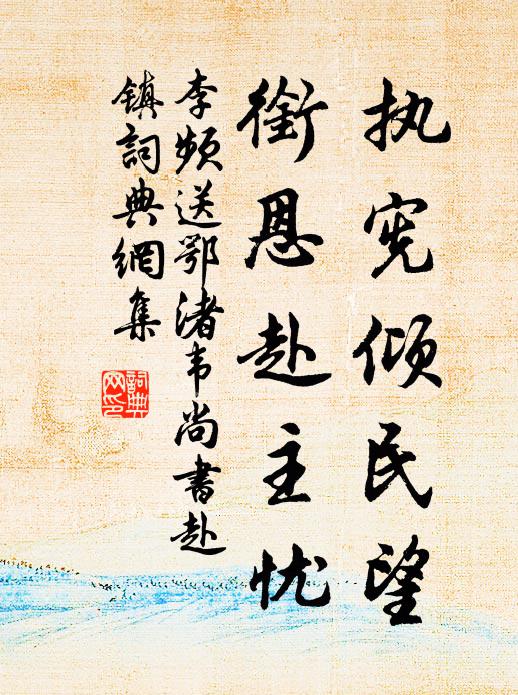 执宪倾民望
衔恩赴主忧
李频送鄂渚韦尚書赴
镇詞典網集
詞典
网印